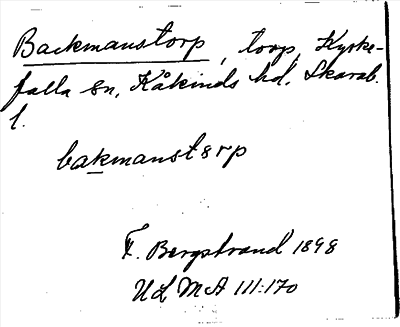 Backmanstorp, torp, Kyrke-
falla sn, Kåkinds hd. Skarab.
l.
bakmanstɜrp
F. Bergstrand 1898
ULMA 111:170